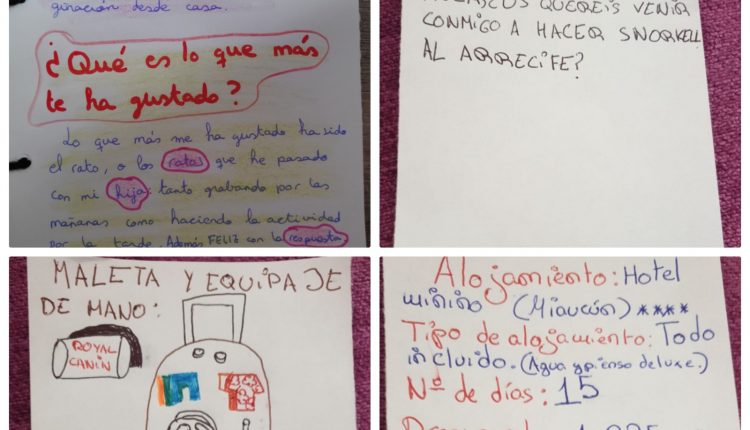 ginación desde casa.
¿Qué es lo que más
te ha gustado?
Lo que más me ha gustado ha sido
el rato, o los ratos que he pasado
con mi hija: tanto grabando por las
mañanas como haciendo la actividad
por la tarde. Además FELIZ con la respuesta
QUEREIS VENIR
CONMIGO A HACER SNORKELL
AL ARRECIFE?
MALETA Y EQUIPAJE
DE MANO:
ROYAL
CANIN
Alojamiento: Hotel
minino (Miaucún) ****
Tipo de alojamiento: Todo
incluido. (Agua y pienso deluxe.)
Nº de días: 15